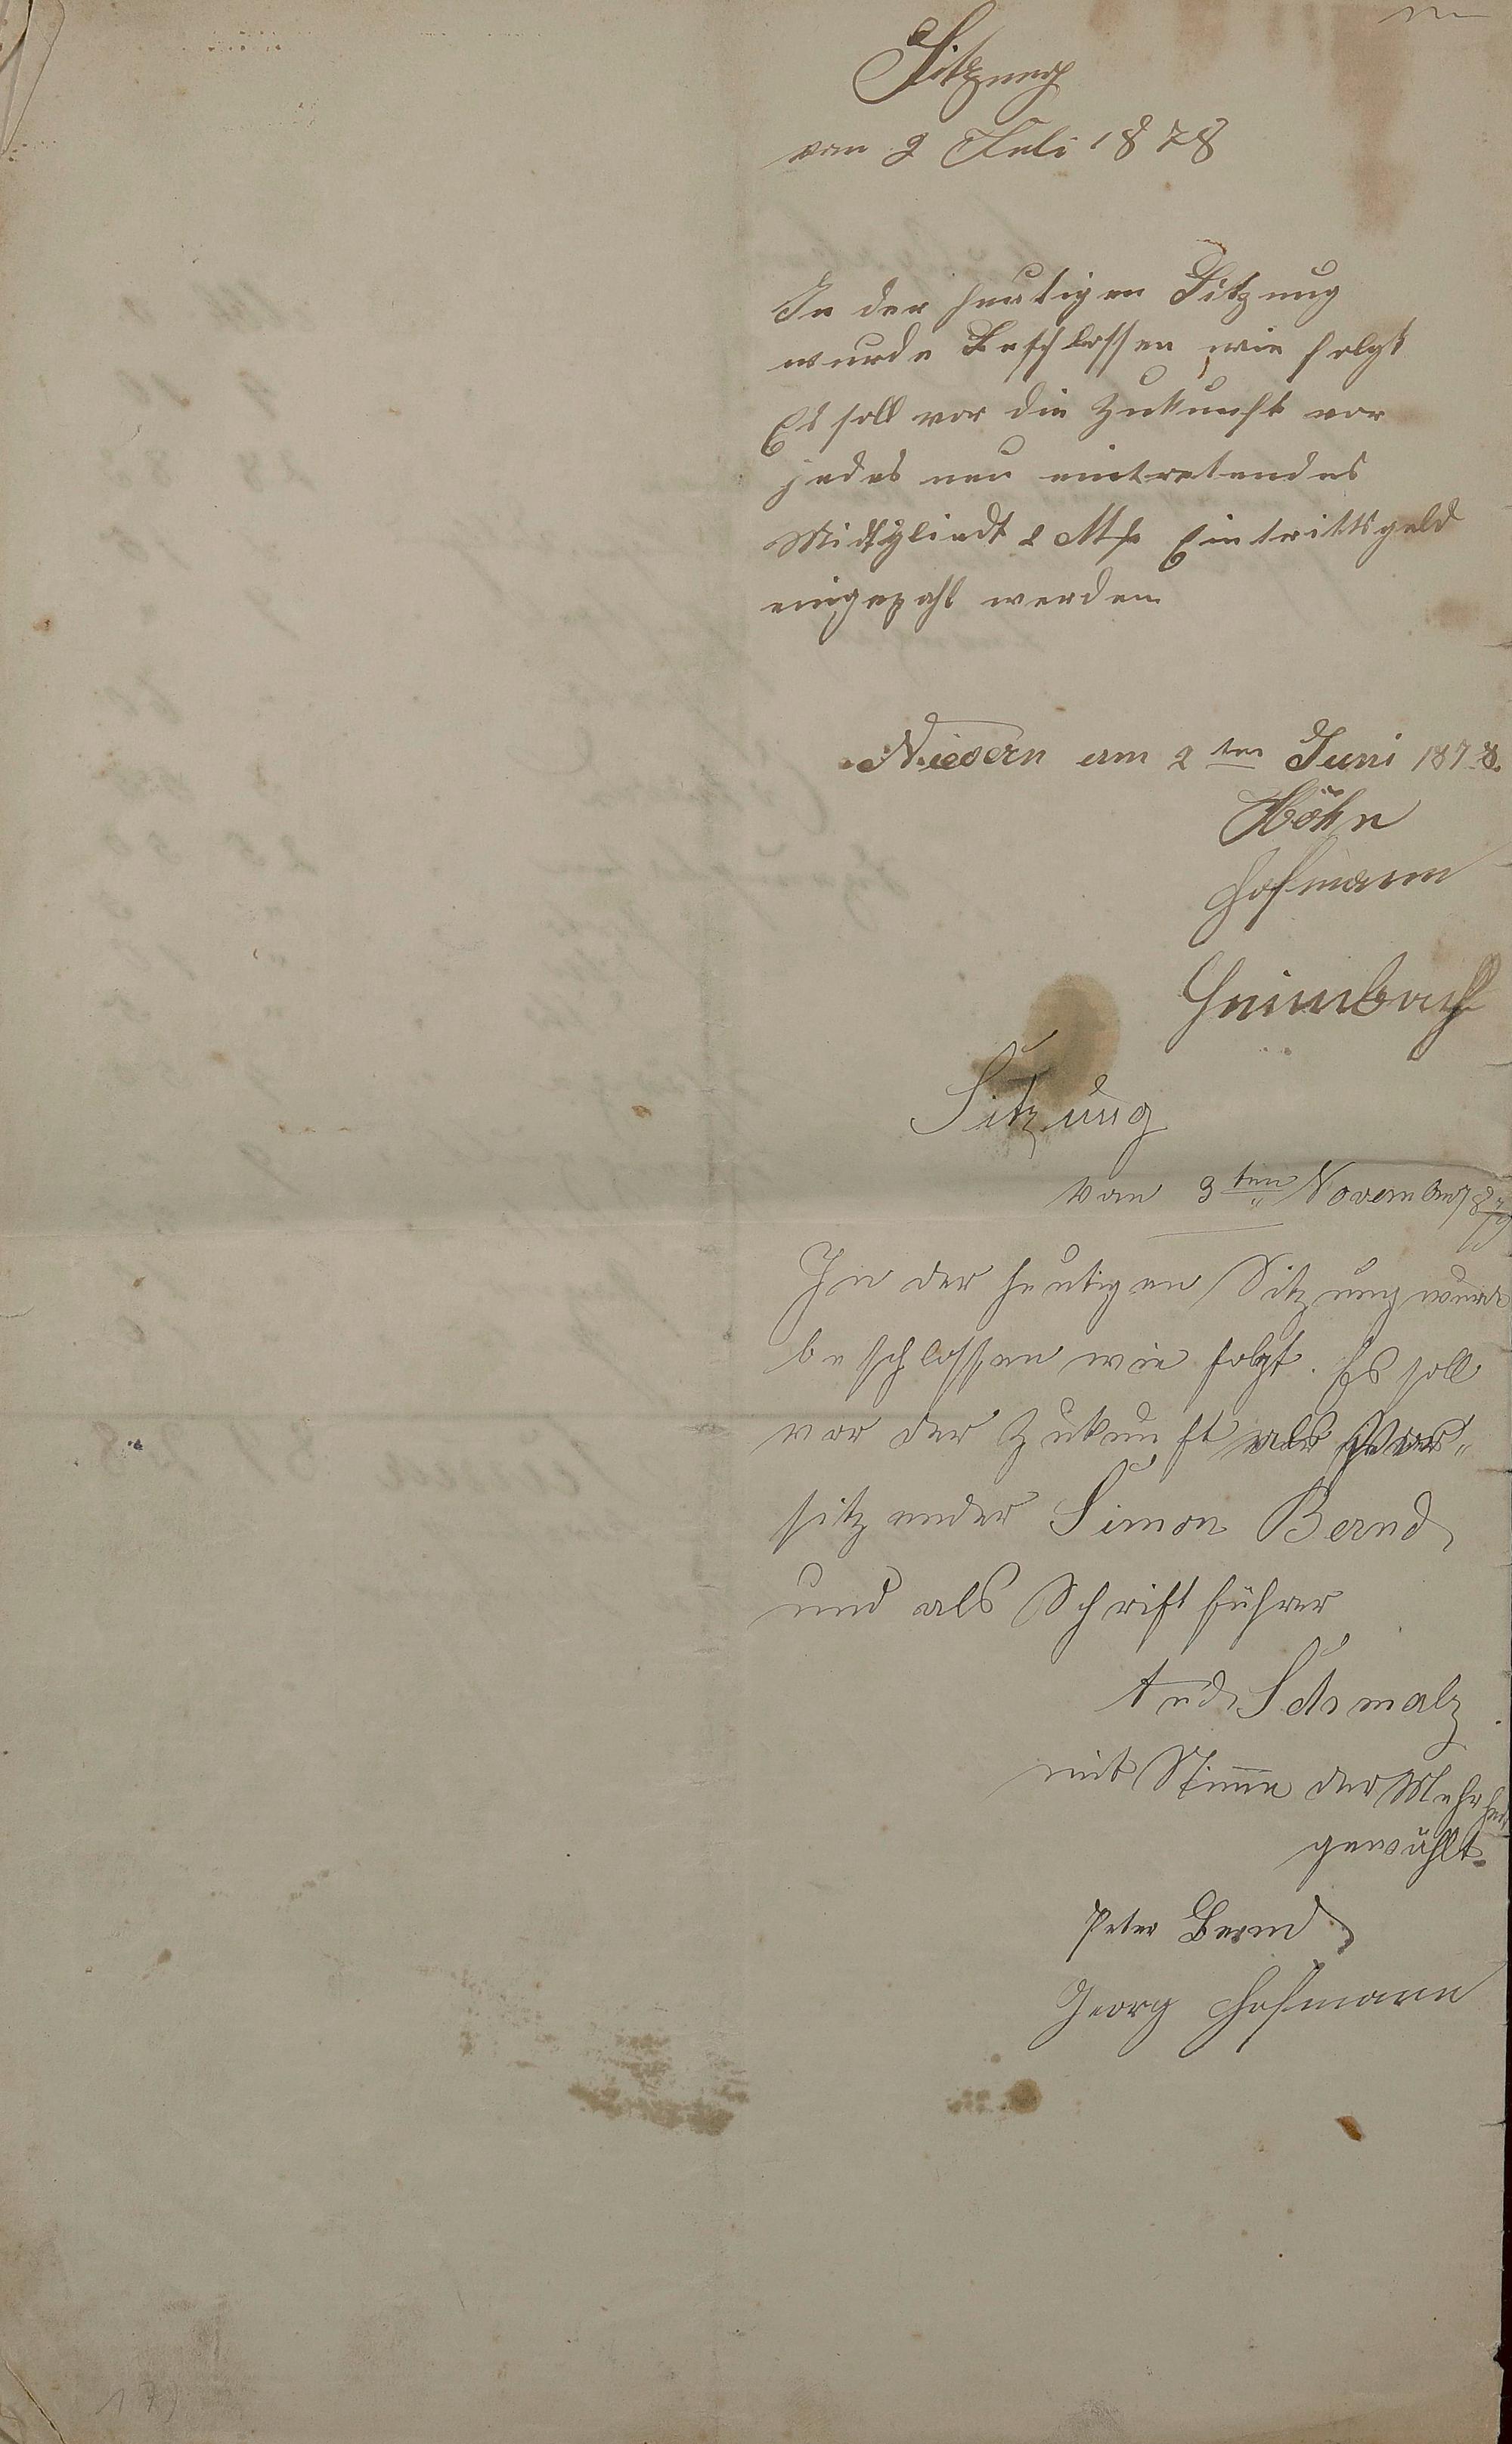 Sitzung
vom 2 Juli 1878
In der heutigen Sitzung
wurde Beschlossen, wie folgt
Es soll vor die Zukunft vor
jedes neu eintretendes
Midtgliedt 2 Mk Eintrittsgeld
eingezahl werden
Niesern am 2ten Juni 1878.
Höhn
Hofmann
Heimbach
Sitzung
vom 3ten November 1879
In der heutigen Sitzung wurde
beschlossen wie folgt. Es soll
vor der Zukunft als Vor„
sitzender Simon Bernd
und als Schriftführer
And. Schmalz.
mit Stimme der Mehrheit
gewählt.
Peter Bernd
Georg Hofmann